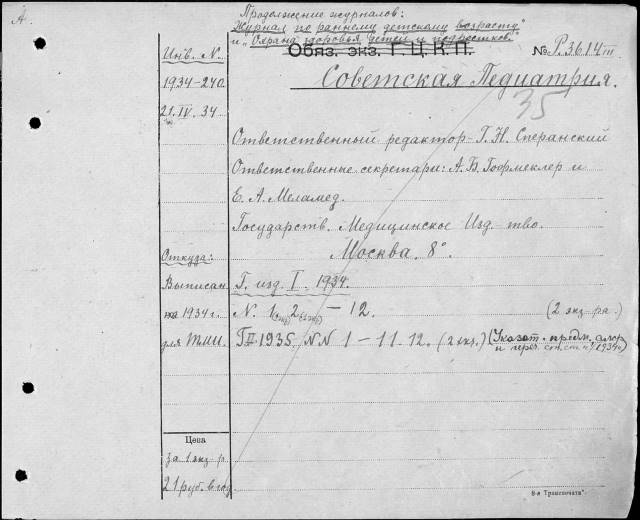 А.
Продолжение журналов:
„Журнал по раннему детскому возрасту"
и „Охрана здоровья детей и подростков."
Обяз. экз. Г.Ц.К.П.
№ Р.3614 III
Инв. N.
1934-240
21.IV.34
Советская Педиатрия.
35
Ответственный редактор - Г. Н. Сперанский
Ответственные секретари: А. Б. Гофмеклер и
Е. А. Меламед.
Государств. Медицинское Изд-тво.
Москва. 8°.
Откуда:
Выписан
на 1934 г.
для
Г. изд. I. 1934.
N. 1 2 - 12.
(2 экз-ра.)
Г II 1935 NN 1-11-12. (2 экз.) (Указат. предм. алф
1934)
Цена
за 1 экз-р
21 руб. в год
8-я Транспечати.